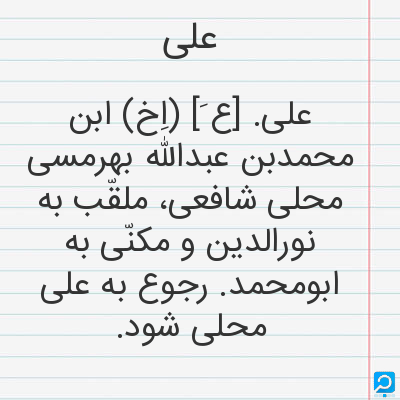 علی
علی. [ع َ] (اِخ) ابن
محمدبن عبدالله بهرمسی
محلی شافعی، ملقّب به
نورالدین و مکنّی به
ابومحمد. رجوع به علی
محلی شود.